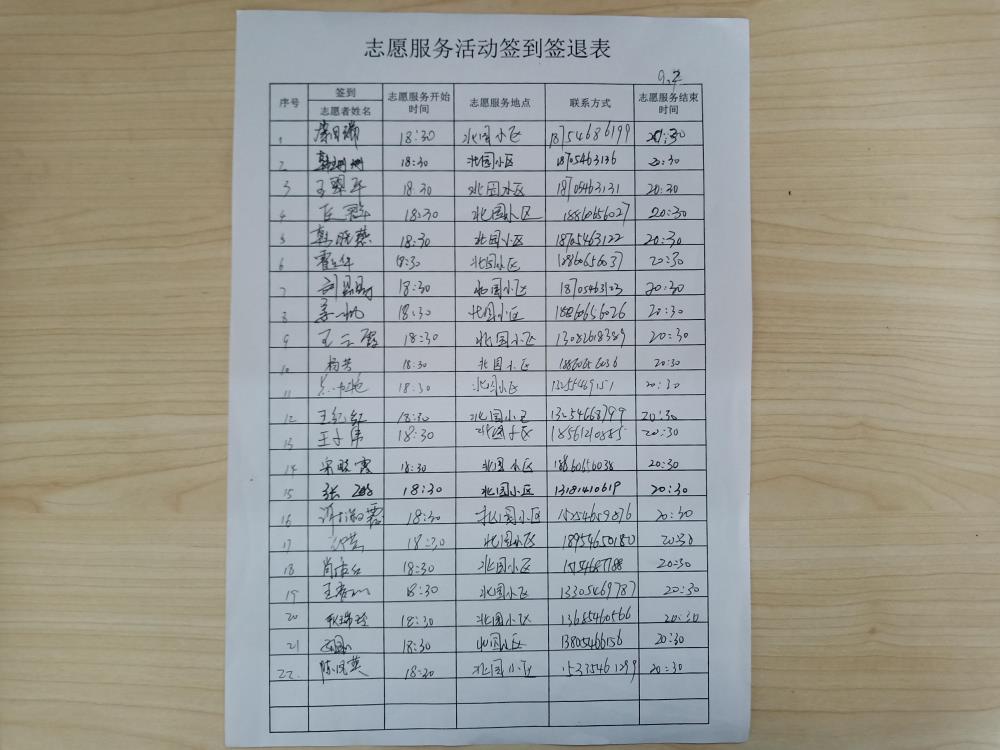 志愿服务活动签到签退表
9.2
序号 签到 志愿者姓名 志愿服务开始时间 志愿服务地点 联系方式 志愿服务结束时间
1 18:30 北国小区 18754686199 20:30
2 18:30 北国小区 18705463136 20:30
3 王翠平 18:30 北国小区 18705463131 20:30
4 18:30 北国小区 18860656027 20:30
5 韩晓燕 18:30 北国小区 18705463122 20:30
6 18:30 北国小区 20:30
7 18:30 北国小区 18705463123 20:30
8 姜一帆 18:30 北国小区 18860656026 20:30
9 王云霞 18:30 北国小区 20:30
10 杨芳 18:30 北国小区 20:30
11 18:30 北国小区 20:30
12 王纪红 18:30 北国小区 13254668799 20:30
13 王子伟 18:30 北国小区 18561210885 20:30
14 宋晓霞 18:30 北国小区 18860656038 20:30
15 张 18:30 北国小区 13181410619 20:30
16 谢淑霞 18:30 北国小区 15254659876 20:30
17 18:30 北国小区 18954650180 20:30
18 18:30 北国小区 20:30
19 18:30 北国小区 13305469787 20:30
20 18:30 北国小区 13685460566 20:30
21 18:30 北国小区 13805466156 20:30
22. 陈凤英 18:30 北国小区 15335461299 20:30